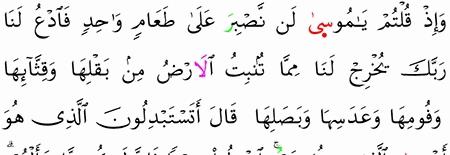 وَإِذْ قُلْتُمْ يَـٰمُوسىٰ لَن نَّصْبِرَ عَلَىٰ طَعَامٍ وَٰحِدٍ فَٱدْعُ لَنَا
رَبَّكَ يُخْرِجْ لَنَا مِمَّا تُنۢبِتُ ٱلَارْضُ مِنۢ بَقْلِهَا وَقِثَّآئِهَا
وَفُومِهَا وَعَدَسِهَا وَبَصَلِهَا قَالَ أَتَسْتَبْدِلُونَ ٱلَّذِى هُوَ